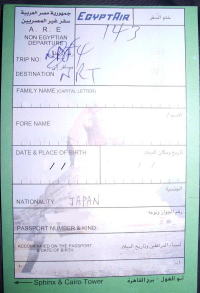 جمهورية مصر العربية
سفر غير المصريين
A. R. E
NON EGYPTIAN
DEPARTURE
EGYPTAIR
ختم السفر
143
TRIP NO.
DESTINATION NRT
FAMILY NAME (CAPITAL LETTER)
FORE NAME
DATE & PLACE OF BIRTH
تاريخ ومكان الميلاد
/ /
/ /
الجنسية
NATIONALITY JAPAN
رقم الجواز ونوعه
PASSPORT NUMBER & KIND
ACCOMPANIED ON THE PASSPORT
& DATE OF BIRTH
أسماء المرافقين وتاريخ الميلاد
Sphinx & Cairo Tower
أبو الهول - برج القاهرة